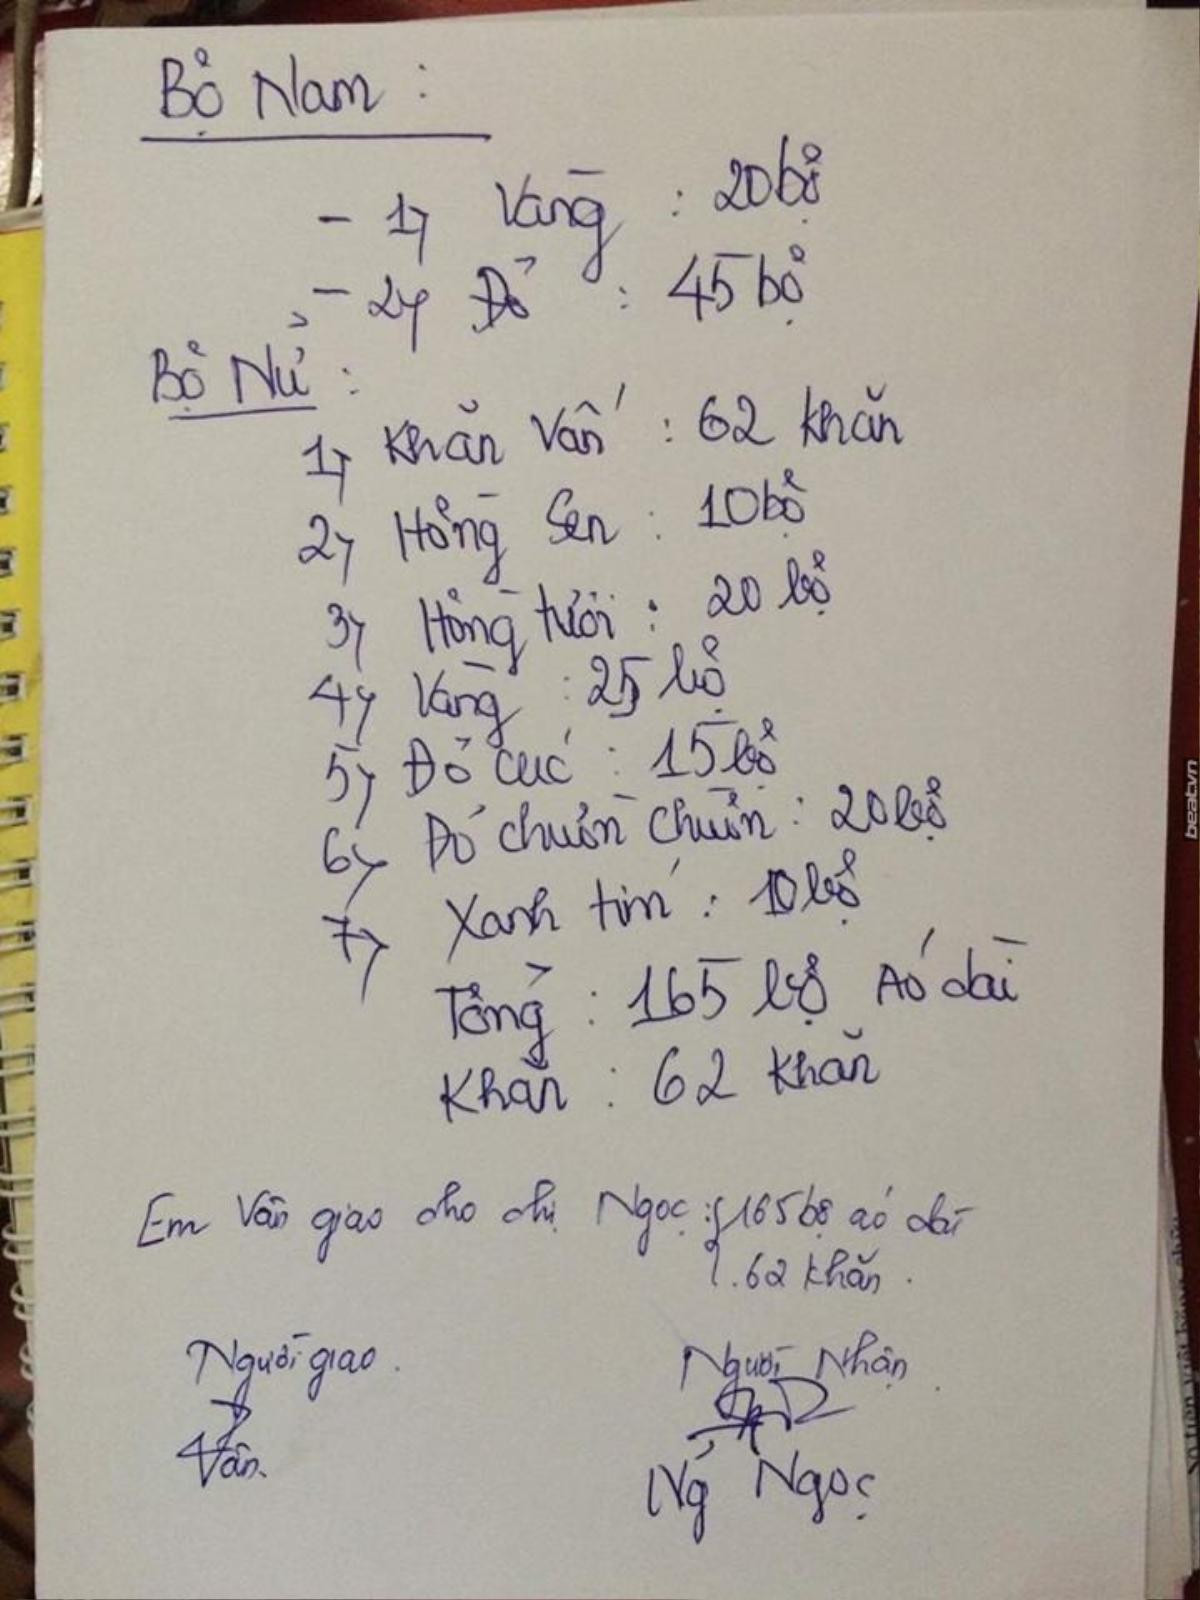 Bộ Nam :
- 1, Vàng : 20 bộ
- 2, Đỏ : 45 bộ
Bộ Nữ :
1, Khăn Vấn : 62 khăn
2, Hồng Sen : 10 bộ
3, Hồng tươi : 20 bộ
4, Vàng : 25 bộ
5, Đỏ cúc : 15 bộ
6, Đỏ chuồn chuồn : 20 bộ
7, Xanh tím : 10 bộ
Tổng : 165 bộ Áo dài
Khăn : 62 khăn
Em Vân giao cho chị Ngọc : { 165 bộ áo dài
. 62 khăn .
Người giao .
Người Nhận .
Vân.
Ngọc
beatvn